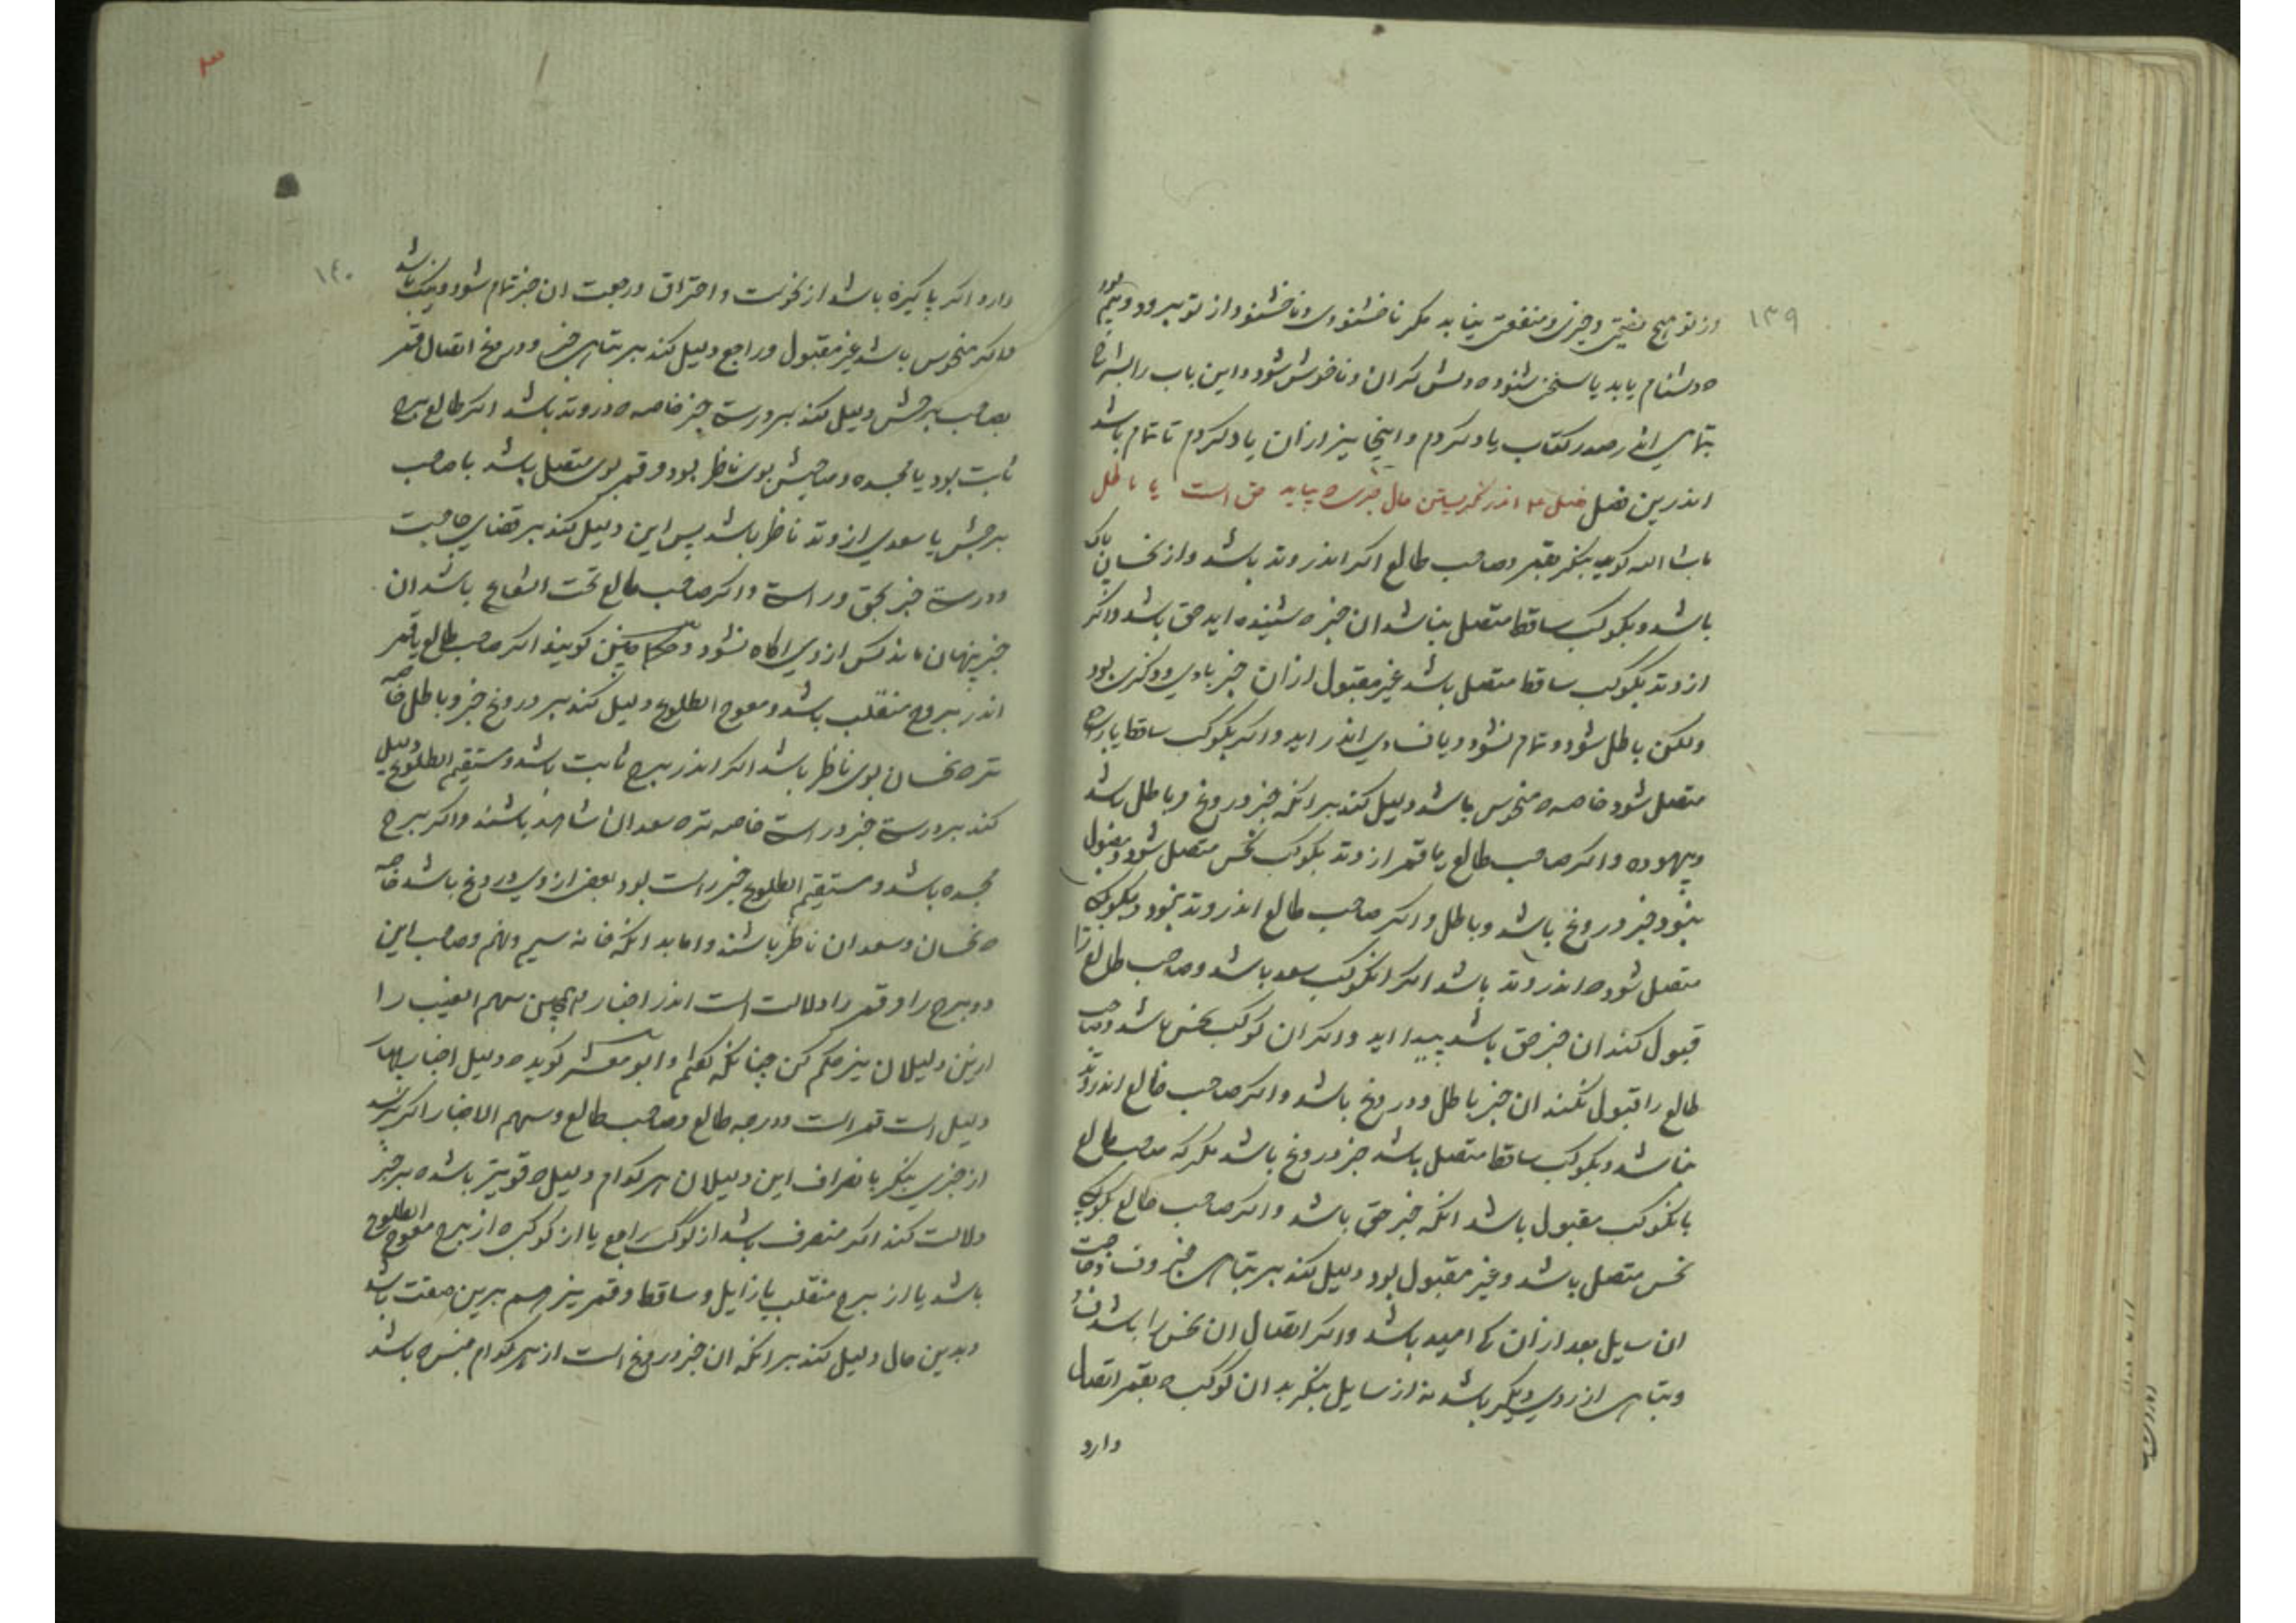 ۱۳۹
وز تو هیچ نفیی و چیزی و منفعتی نیابد مگر ناخشنودی و ناخشنود از تو برود و بیم بود
ه دشنام یابد یا سخن شنود ه دلش کران و ناخوش شود و این باب را بشرح
بتمامی اندر صدر کتاب یاد کردم و اینجا نیز از ان یاد کردم تا تمام باشد
اندرین فصل فصل ۴ اندر نگریستن حال خبری ه بیاید حق است یا باطل
ماشاالله کوید بنگر بقمر و صاحب طالع اگر اندر وتد باشد و از نحسان پاک
باشد و بکوکب ساقط متصل نباشد ان خبر ه شنیده اید حق باشد و اگر
از وتد بکوکب ساقط متصل باشد غیر مقبول از ان خبر یادی و ذکری بود
ولکن باطل شود و تمام نشود و یا فسادی اندر اید و اگر بکوکب ساقط یا راجع
متصل شود خاصه ه منحوس باشد دلیل کند بر انکه خبر دروغ و باطل باشد
و بیهوده و اگر صاحب طالع یا قمر از وتد بکوکب نحس متصل شود و مقبول
نبود خبر دروغ باشد و باطل و اگر صاحب طالع اندر وتد نبود و بکوکب
متصل شود ه اندر وتد باشد اگر انکوکب سعد باشد و صاحب طالع را
قبول کند ان خبر حق باشد پیدا اید و اگر ان کوکب نحس باشد و صاحب
طالع را قبول نکند ان خبر باطل و دروغ باشد و اگر صاحب طالع اندر وتد
نباشد و بکوکب ساقط متصل باشد خبر دروغ باشد مگر که صاحب طالع
بانکوکب مقبول باشد انکه خبر حق باشد و اگر صاحب طالع بکوکب
نحس متصل باشد و غیر مقبول بود دلیل کند بر تباهی خبر و فساد حاجت
ان سایل بعد از ان که امید باشد و اگر اتصال ان نحس را باشد فساد
و تباهی از روی دیگر باشد نه از سایل بنگر بدان کوکب ه بقمر اتصال
دارد
۱۴۰
دارد اگر پاکیزه باشد از نحوست و احتراق و رجعت ان خبر تمام شود و نیک باشد
و اگر منحوس باشد غیر مقبول و راجع دلیل کند بر تباهی خبر و دروغ اتصال قمر
بصاحب برجش دلیل کند بر درستی خبر خاصه ه در وتد باشد اگر طالع برج
ثابت بود یا مجسده و صاحبش بوی ناظر بود و قمر بوی متصل باشد با صاحب
برجش یا سعدی از وتد ناظر باشد پس این دلیل کند بر قضای حاجت
و درستی خبر بحق و راستی و اگر صاحب طالع تحت الشعاع باشد ان
خبر پنهان ماند کس از وی اگاه نشود و حکما چنین کویند اگر صاحب طالع یا قمر
اندر بروج منقلب باشد و معوج الطلوع دلیل کند بر دروغ خبر و باطل خاصه
تر ه نحسان بوی ناظر باشد اگر اندر برج ثابت باشد و مستقیم الطلوع دلیل
کند بر درستی خبر و راستی خاصه تر ه سعدان شاهد باشند و اگر برج
مجسده باشد و مستقیم الطلوع خبر راست بود بعضی از وی دروغ باشد خاصه
ه نحسان و سعدان ناظر باشند و اما بدانکه خانه سیم و نهم و صاحب این
دو برج را و قمر را دلالت است اندر اخبار همچنین سهم الغیب را
ازین دلیلان نیز حکم کن چنانکه کفتم و ابو معشر کوید ه دلیل اخبار
دلیل است قمر است و درجه طالع و صاحب طالع و سهم الاخبار اگر پرسند
از خبری بنگر بانصراف این دلیلان هر کدام دلیل ه قویتر باشد ه بر خبر
دلالت کند اگر منصرف باشد از کوکب راجع یا از کوکب ه از برج معوج الطلوع
باشد یا از برج منقلب یا زایل و ساقط و قمر نیز هم برین صفت باشد
و بدین حال دلیل کند بر انکه ان خبر دروغ است از هر کدام جنس ه باشد